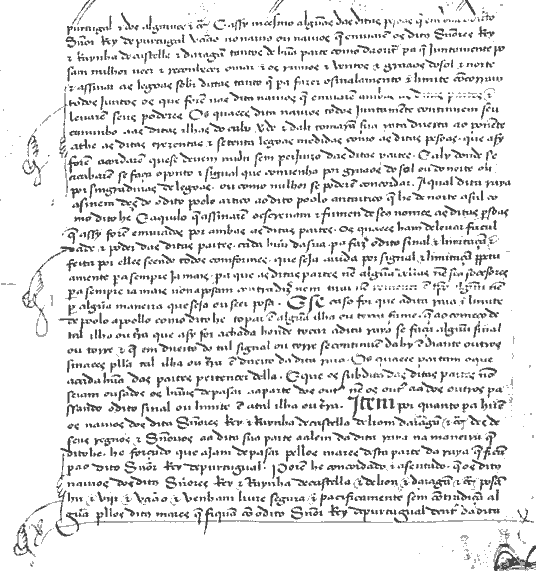 purtugal e dos algarves & c̃. E assy mesmo algũas das ditas pesoas q̃
Señor Rey de purtugal vaão no navio ou navios q̃ emviarẽ os dito Señores Rey
& Raynha de castella & daragã tantos de hũa parte como da outra pa q̃ Juntamente po
sam milhor veer & reconhecer o mar & os rumos & ventos & graaos de sol & norte
& assinar as legoas sobre ditas tanto q̃ pa fazer o sinalamento & limite concorram
todos Juntos os que forẽ nas ditas navios q̃ emviarẽ ambas as ditas partes &
levarẽ seus poderes. Os quaees ditos navios todos Juntamente continuem seu
caminho aas ditas ilhas do cabo Verde & dali tomarã sua rota dereita ao ponente
athe as ditas trezentas & setenta legoas medidas como as ditas pesoas que asy
forẽ acordarẽ que se devem midir sem perjuizo das ditas partes. E aly donde se
acabarẽ se faça o ponto & signal que convenha por graaos de sol ou de norte ou
por singraduras de legoas. ou como milhor se poderẽ concordar. A qual dita raya
asinem des do dito polo artico ao dito polo antartico q̃ he de norte a sul co
mo dito he E aquilo q̃ assinarẽ o escrevam & firmem de seos nomes as ditas pesoas
q̃ assy forẽ emviados por ambas as ditas partes. Os quaees ham de levar facul
dades & poder das ditas partes. cada hũu da sua pa fazer o dito sinal & limitaçã
feita por elles seendo todos conformes. que seja avida por signal & limitaçã perpetu
amente pa sempre Ja mais. pa que as ditas partes nẽ algũa dellas nẽ seus sobcesores
pa sempre Ja mais no na posam contradizer nem tirar nẽ remover ẽ tempo algũu nẽ
per algũa maneira que seja ou seer posa. E se caso for que a dita raya & limite
de polo a polo como dito he. topar ẽ algũa ilha ou terra firme. q̃ ao começo de
tal ilha ou terra que asy for achada honde tocar a dita raya se faça algũu sinal
ou torre & q̃ em dereito do tal signal ou torre se continuem daly ẽ diante outros
sinaees pella tal ilha ou terra ẽ dereito da dita raya. Os quaees partam o que
a cada hũa das partes pertencer della. E que os subditos das ditas partes nõ
sejam ousados os hũus de pasar aa parte dos outros nẽ os outros aa dos outros pa
ssando o dito sinal ou limite ẽ a tal ilha ou terra. Item por quanto pa hirẽ
os navios dos ditos Señores Rey & Raynha de castella de liom daragã & c̃. des de
seus regnos & Señorios aa dita sua parte aalem da dita raya na maneira q̃
dito he. he forçado que ajam de pasar pellos mares desta parte da raya q̃ ficam
pa o dito Señor Rey de purtugual. Porẽ he concordado & asentado. que os ditos
navios dos ditos Señores Rey & Raynha de castella & de liom & daragã & c̃ posam
hir & vijr & vaão & venham livre segura & pacificamente sem contradiçã al
gũa pellos ditos mares q̃ fiquam co o dito Señor Rey de purtugual dentro da dita